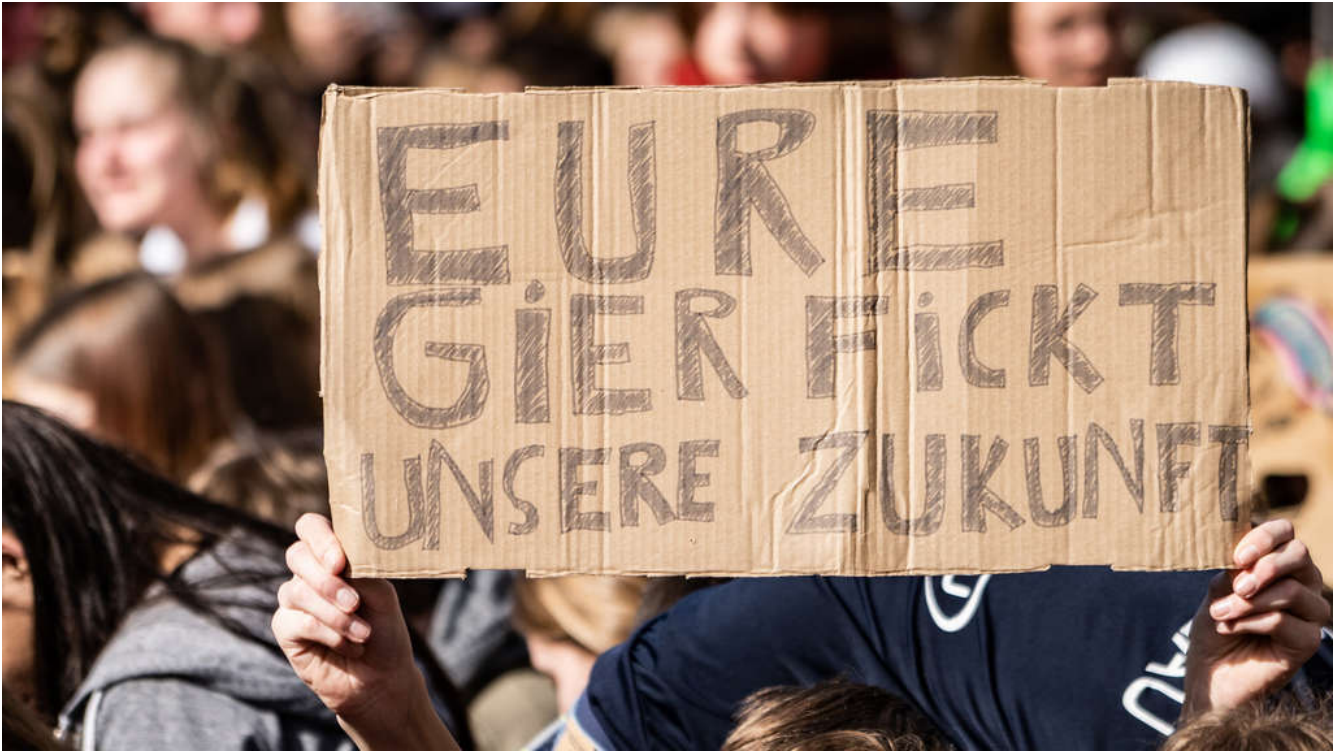 EURE
GiER FiCKT
UNSERE ZUKUNFT